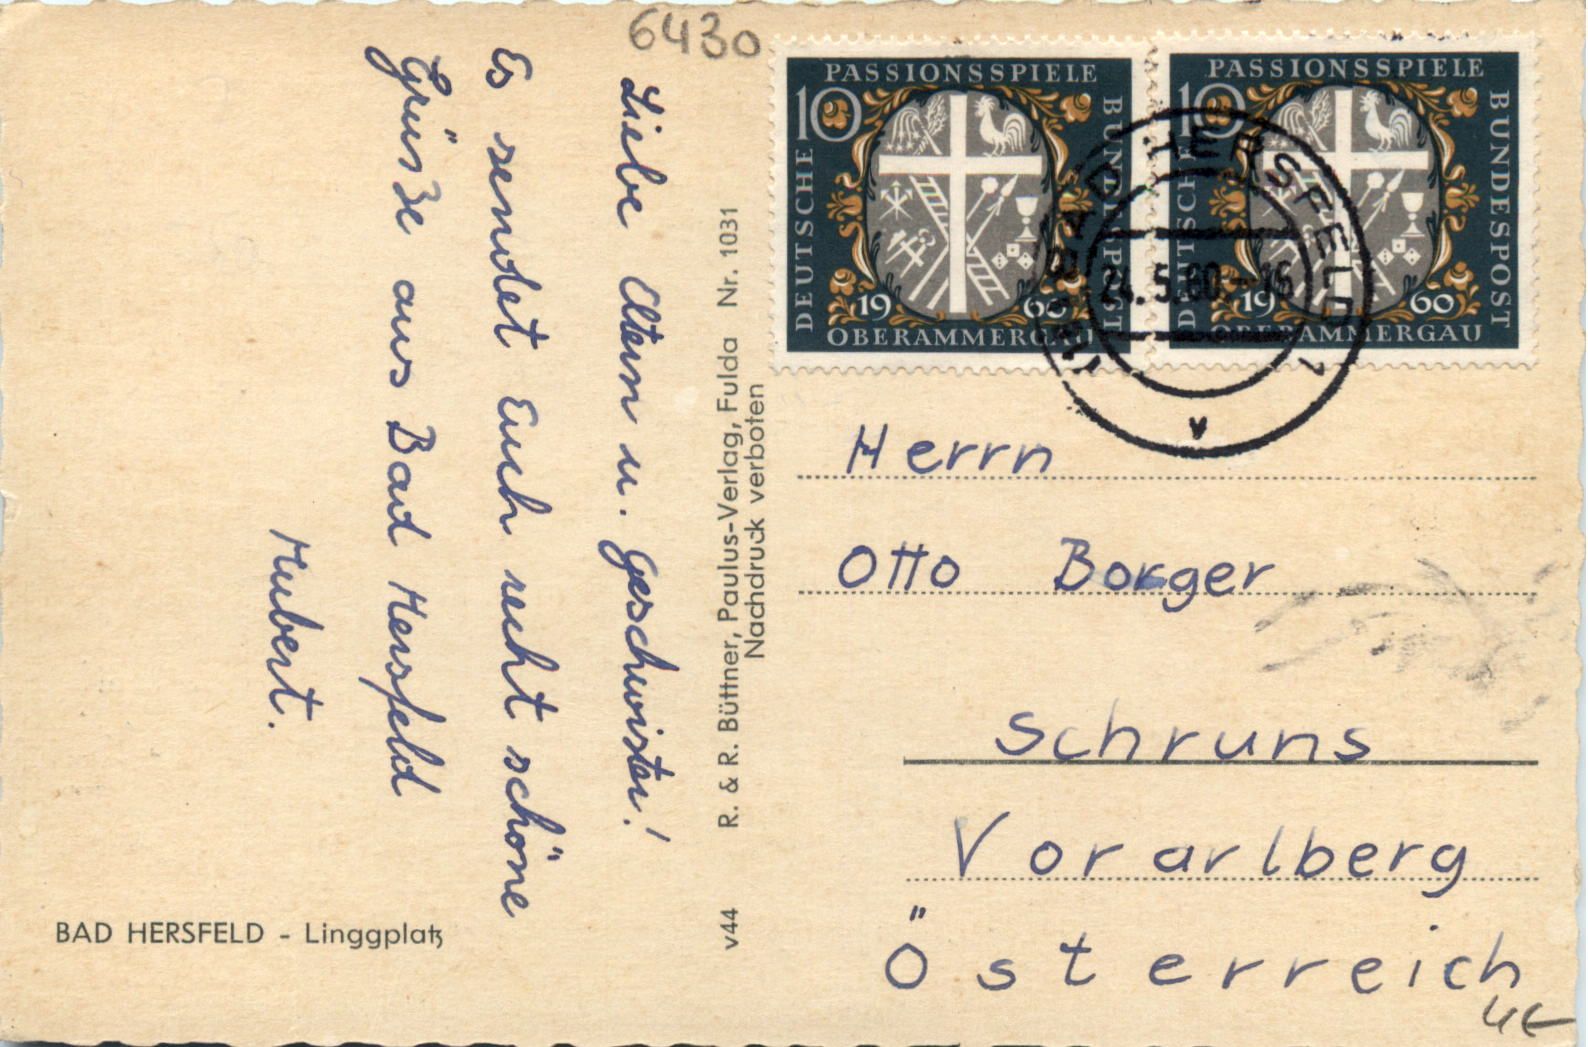 6430
Liebe Eltern u. Geschwister!
Es sendet Euch recht schöne
Grüsse aus Bad Hersfeld
Hubert.
BAD HERSFELD - Linggplatz
v44 R. & R. Büttner, Paulus-Verlag, Fulda Nr. 1031
Nachdruck verboten
PASSIONSSPIELE
10
DEUTSCHE
BUNDESPOST
1960
OBERAMMERGAU
PASSIONSSPIELE
10
DEUTSCHE
BUNDESPOST
1960
OBERAMMERGAU
BAD HERSFELD 1
24.5.60-16
v
Herrn
Otto Borger
Schruns
Vorarlberg
Österreich
4€